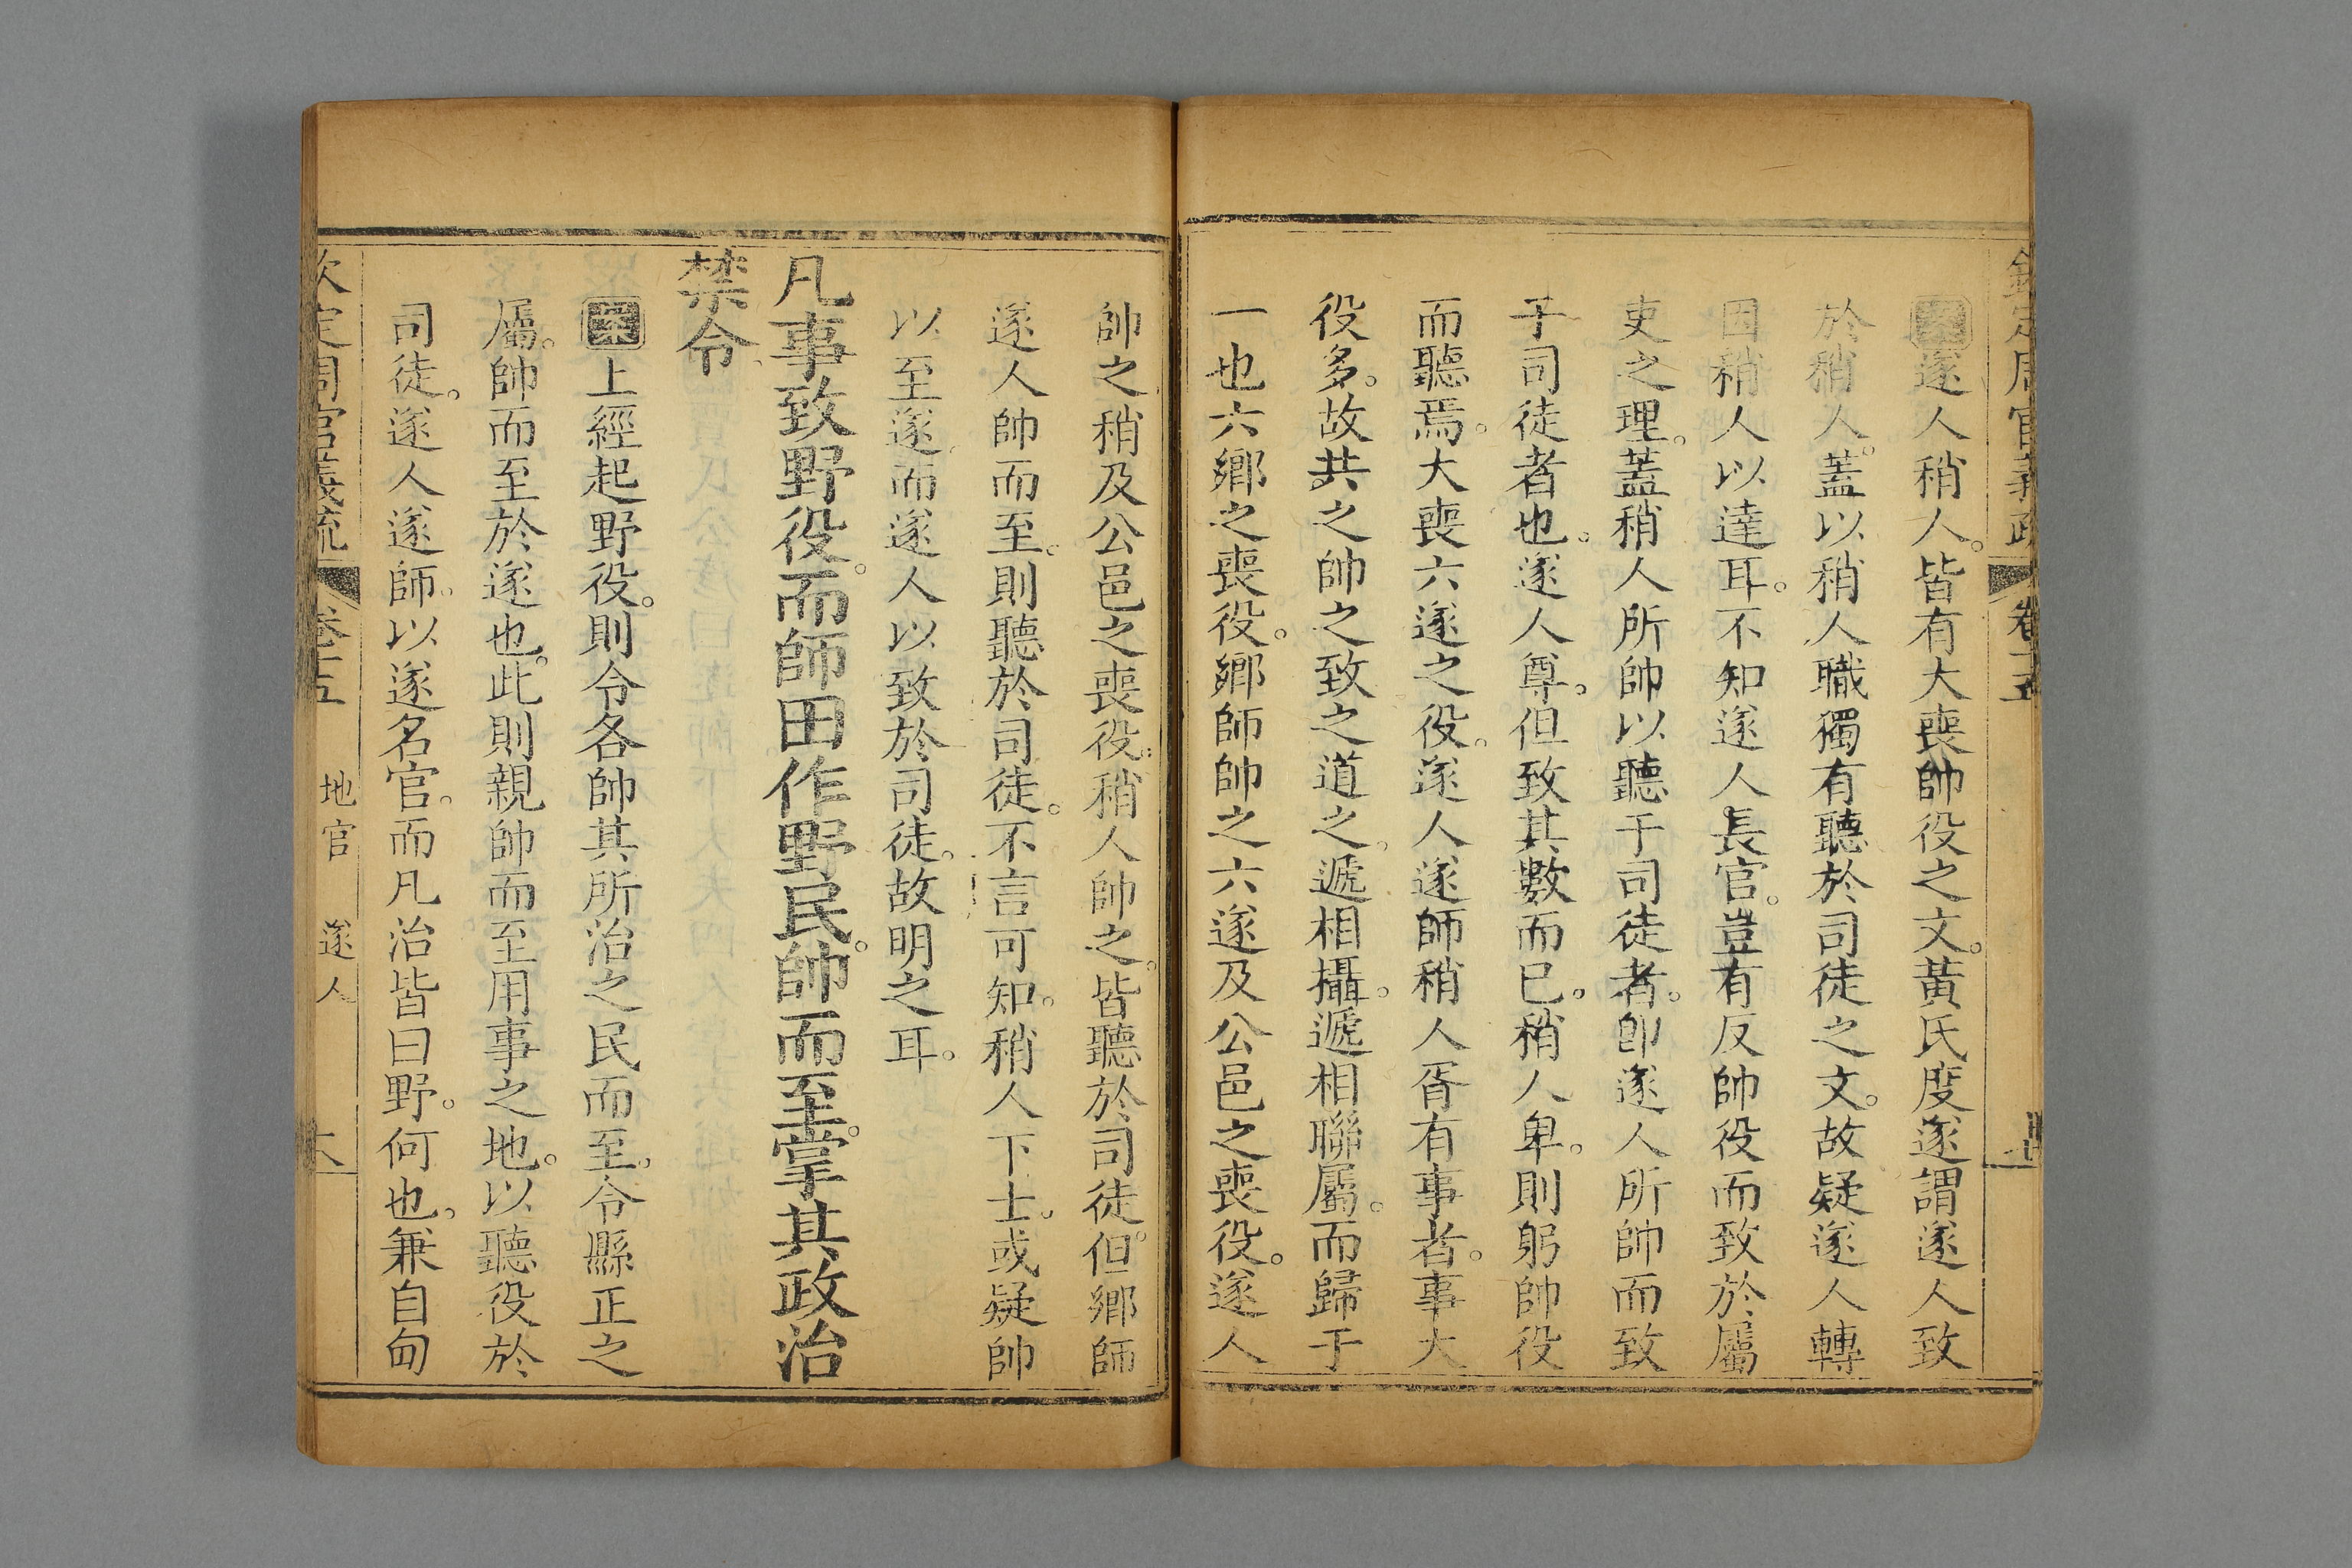 欽定周官義疏 卷十五
案遂人稍人。皆有大喪帥役之文。黃氏度遂謂遂人致
於稍人。蓋以稍人職獨有聽於司徒之文。故疑遂人轉
因稍人以達耳。不知遂人長官。豈有反帥役而致於屬
吏之理。蓋稍人所帥以聽于司徒者。卽遂人所帥而致
于司徒者也。遂人尊。但致其數而已。稍人卑。則躬帥役
而聽焉。大喪六遂之役。遂人遂師稍人胥有事者。事大
役多。故共之帥之致之道之。遞相攝。遞相聯屬。而歸于
一也六鄉之喪役。鄉師帥之六遂及公邑之喪役。遂人
帥之稍及公邑之喪役。稍人帥之。皆聽於司徒。但鄉師
遂人帥而至。則聽於司徒。不言可知。稍人下士。或疑帥
以至遂而遂人以致於司徒。故明之耳。
凡事致野役。而師田作野民。帥而至。掌其政治
禁令
案上經起野役。則令各帥其所治之民而至。令縣正之
屬。帥而至於遂也。此則親帥而至用事之地。以聽役於
司徒。遂人遂師。以遂名官。而凡治皆曰野。何也。兼自甸
欽定周官義疏 卷十五 地官 遂人